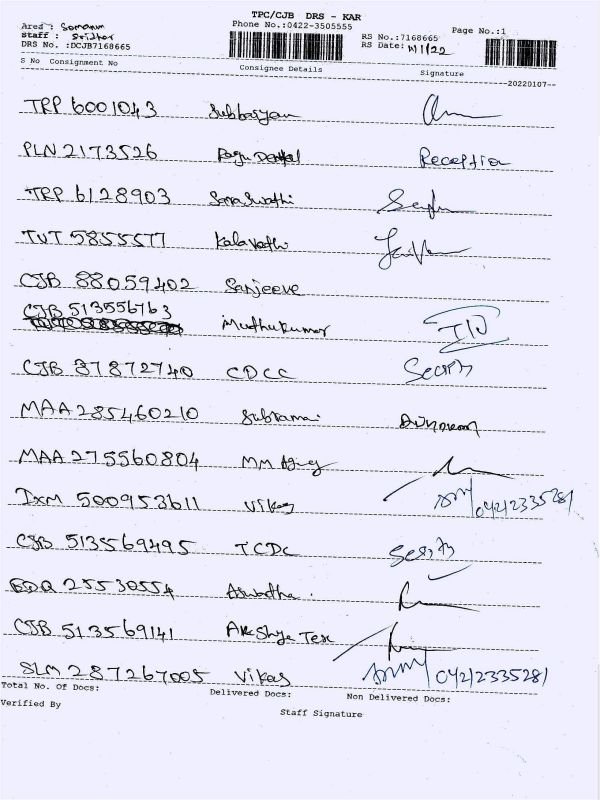 TPC/CJB DRS - KAR
Ared : Somanur Phone No.:0422-3505555 Page No.:1
Staff : Sridhar RS No.:7168665
DRS No. :DCJB7168665 RS Date: 11/1/22
S No Consignment No Consignee Details Signature
--20220107--
TRP 6001043 Subbaiyan
PLN 2173526 Ragu Dental Reception
TRP 6128903 Saraswathi
TUT 5855577 Kalavathi
CJB 88059402 Sanjeeve
CJB 513556763
Muthukumar
CJB 87872740 CDCC
MAA 285460210
MAA 275560804 MM
IXM 500953611 Vikas 04212335281
CJB 513569495 TCDC
EDQ 25530554 Aswatha.
CJB 513569141 Akshya Tex
SLM 287267005 Vikas 04212335281
Total No. Of Docs: Delivered Docs: Non Delivered Docs:
Verified By Staff Signature